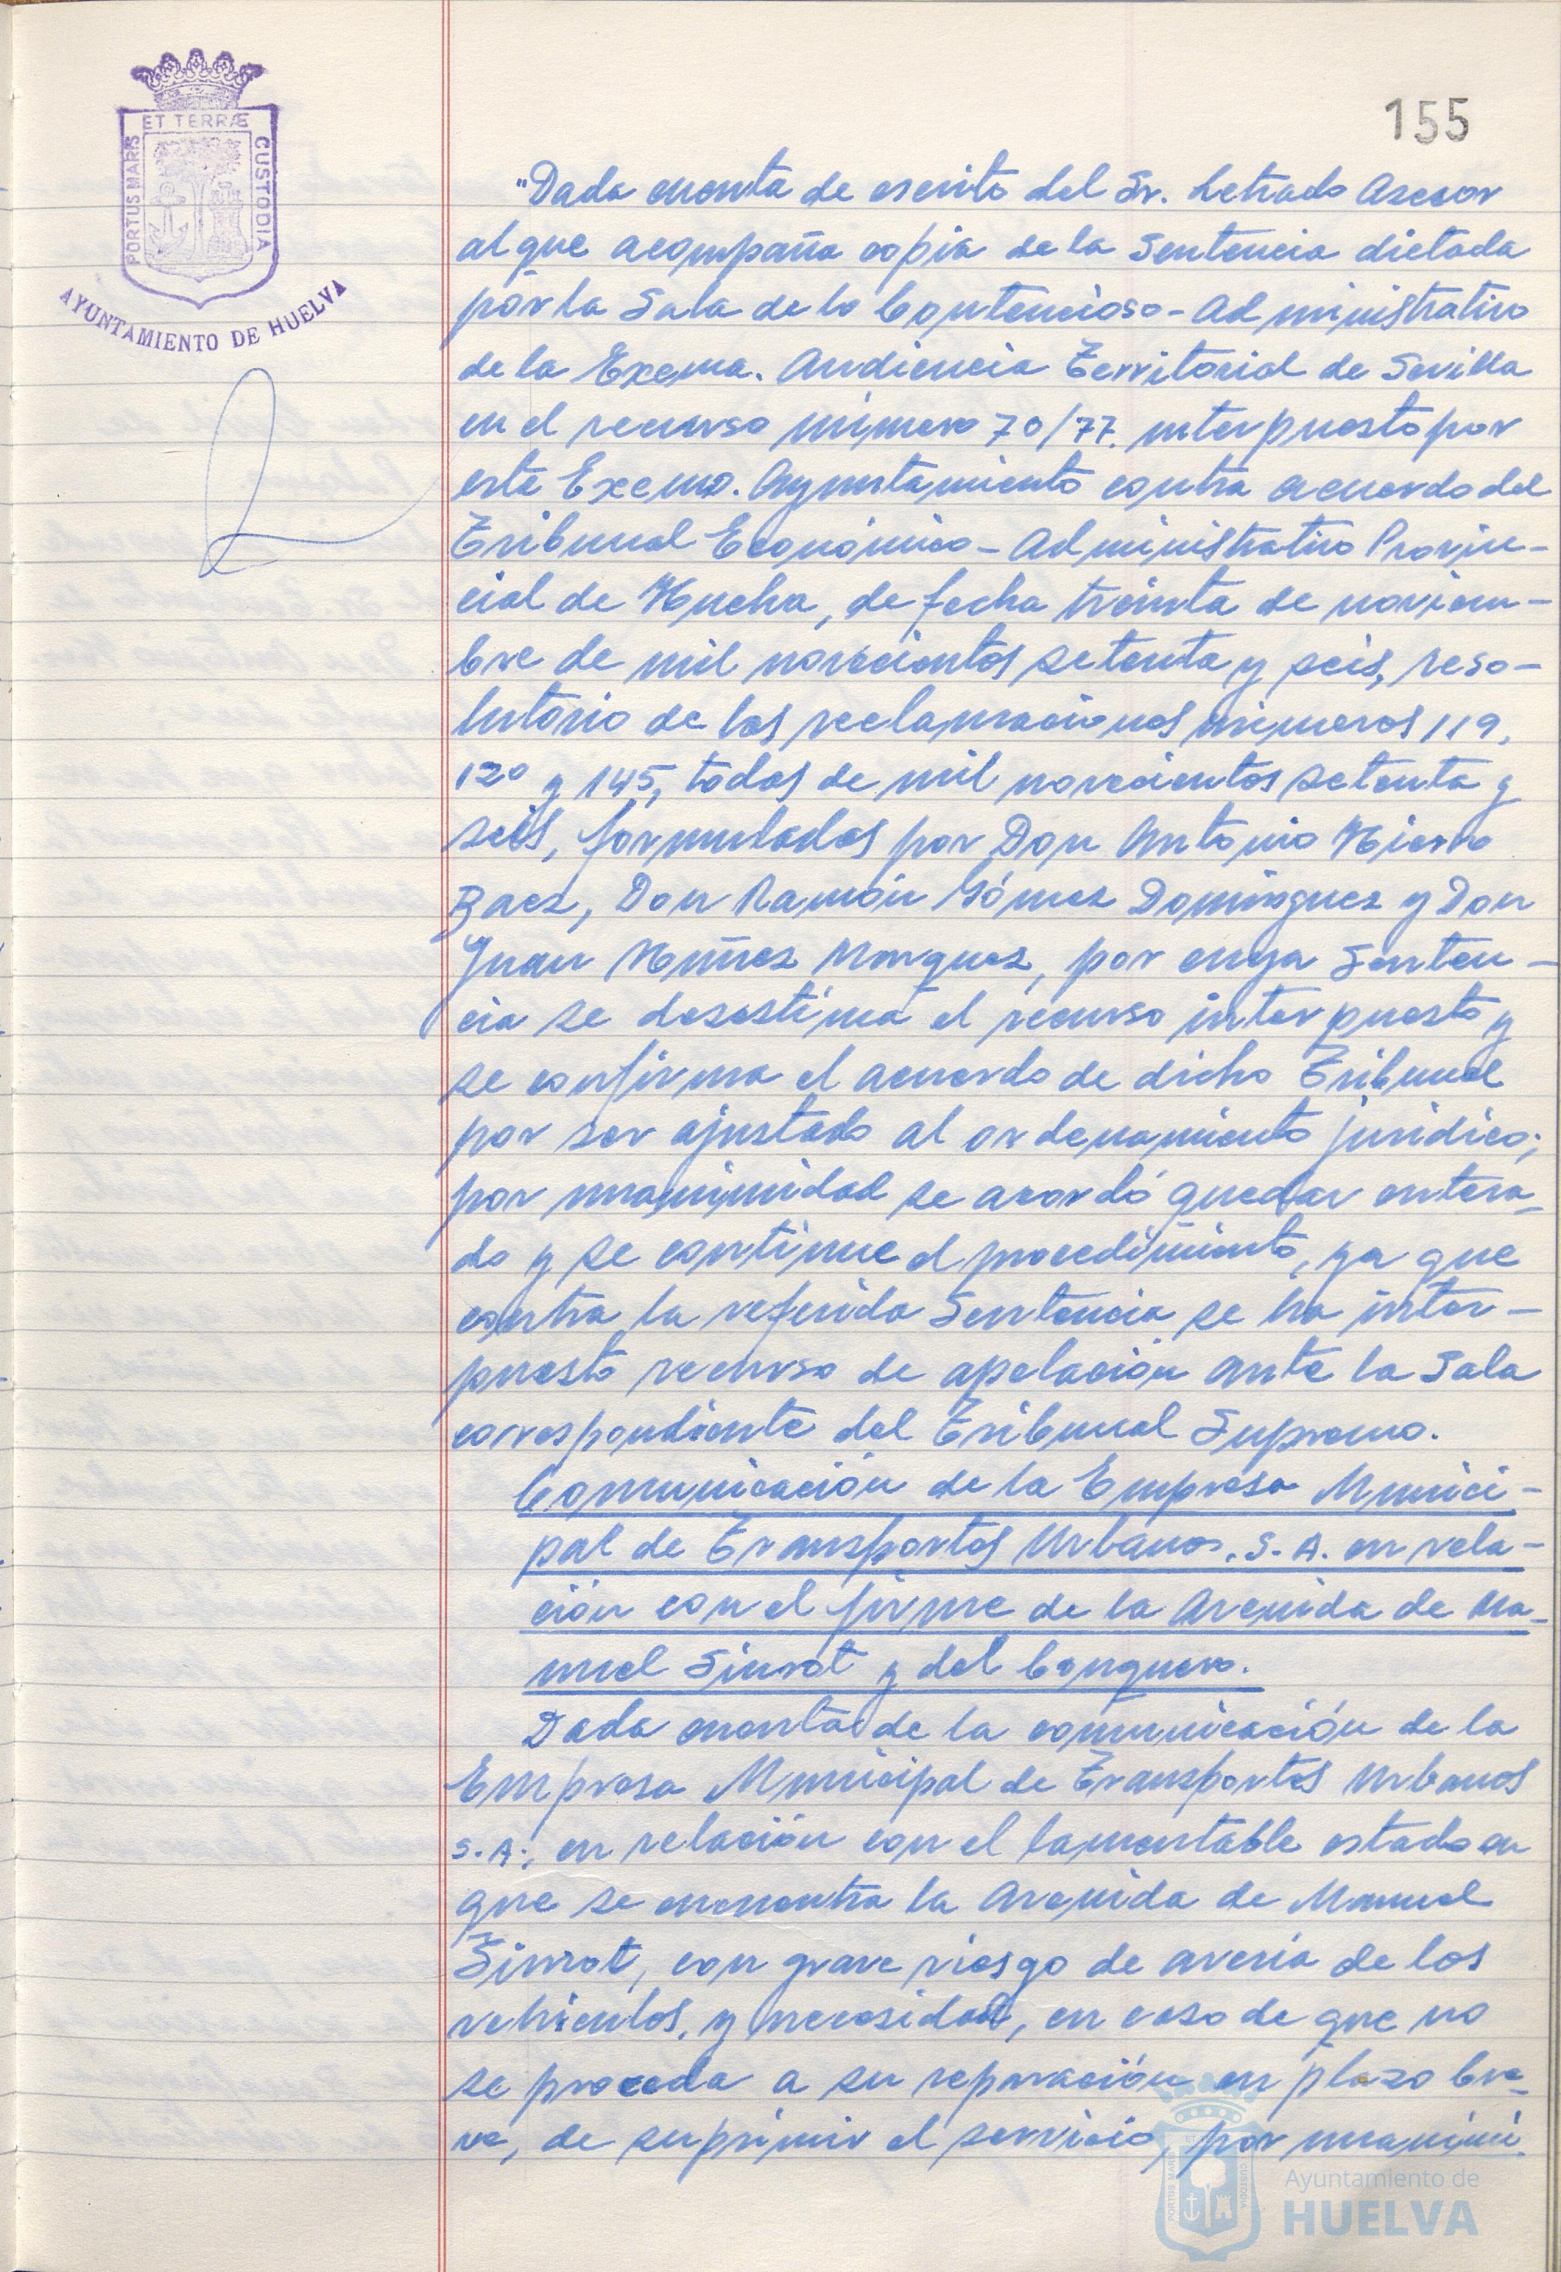 155
ET TERRÆ
PORTUS MARIS
CUSTODIA
AYUNTAMIENTO DE HUELVA
"Dada cuenta de escrito del Sr. Letrado Asesor
al que acompaña copia de la Sentencia dictada
por la Sala de lo Contencioso-Administrativo
de la Excma. Audiencia Territorial de Sevilla
en el recurso número 70/77, interpuesto por
este Excmo. Ayuntamiento contra acuerdo del
Tribunal Económico-Administrativo Provin-
cial de Huelva, de fecha treinta de noviem-
bre de mil novecientos setenta y seis, reso-
lutorio de las reclamaciones números 119,
120 y 145, todas de mil novecientos setenta y
seis, formuladas por Don Antonio Hierro
Baez, Don Ramón Gómez Domínguez y Don
Juan Núñez Marquez, por cuya Senten-
cia se desestima el recurso interpuesto y
se confirma el acuerdo de dicho Tribunal
por ser ajustado al ordenamiento jurídico;
por unanimidad se acordó quedar entera-
do y se continue el procedimiento, ya que
contra la referida Sentencia se ha inter-
puesto recurso de apelación ante la Sala
correspondiente del Tribunal Supremo.
Comunicación de la Empresa Munici-
pal de Transportes Urbanos, S.A. en rela-
ción con el firme de la Avenida de Ma-
nuel Siurot y del Conquero.
Dada cuenta de la comunicación de la
Empresa Municipal de Transportes Urbanos
S.A., en relación con el lamentable estado en
que se encuentra la Avenida de Manuel
Siurot, con grave riesgo de avería de los
vehículos, y necesidad, en caso de que no
se proceda a su reparación en plazo bre-
ve, de suprimir el servicio, por unanimi
Ayuntamiento de
HUELVA